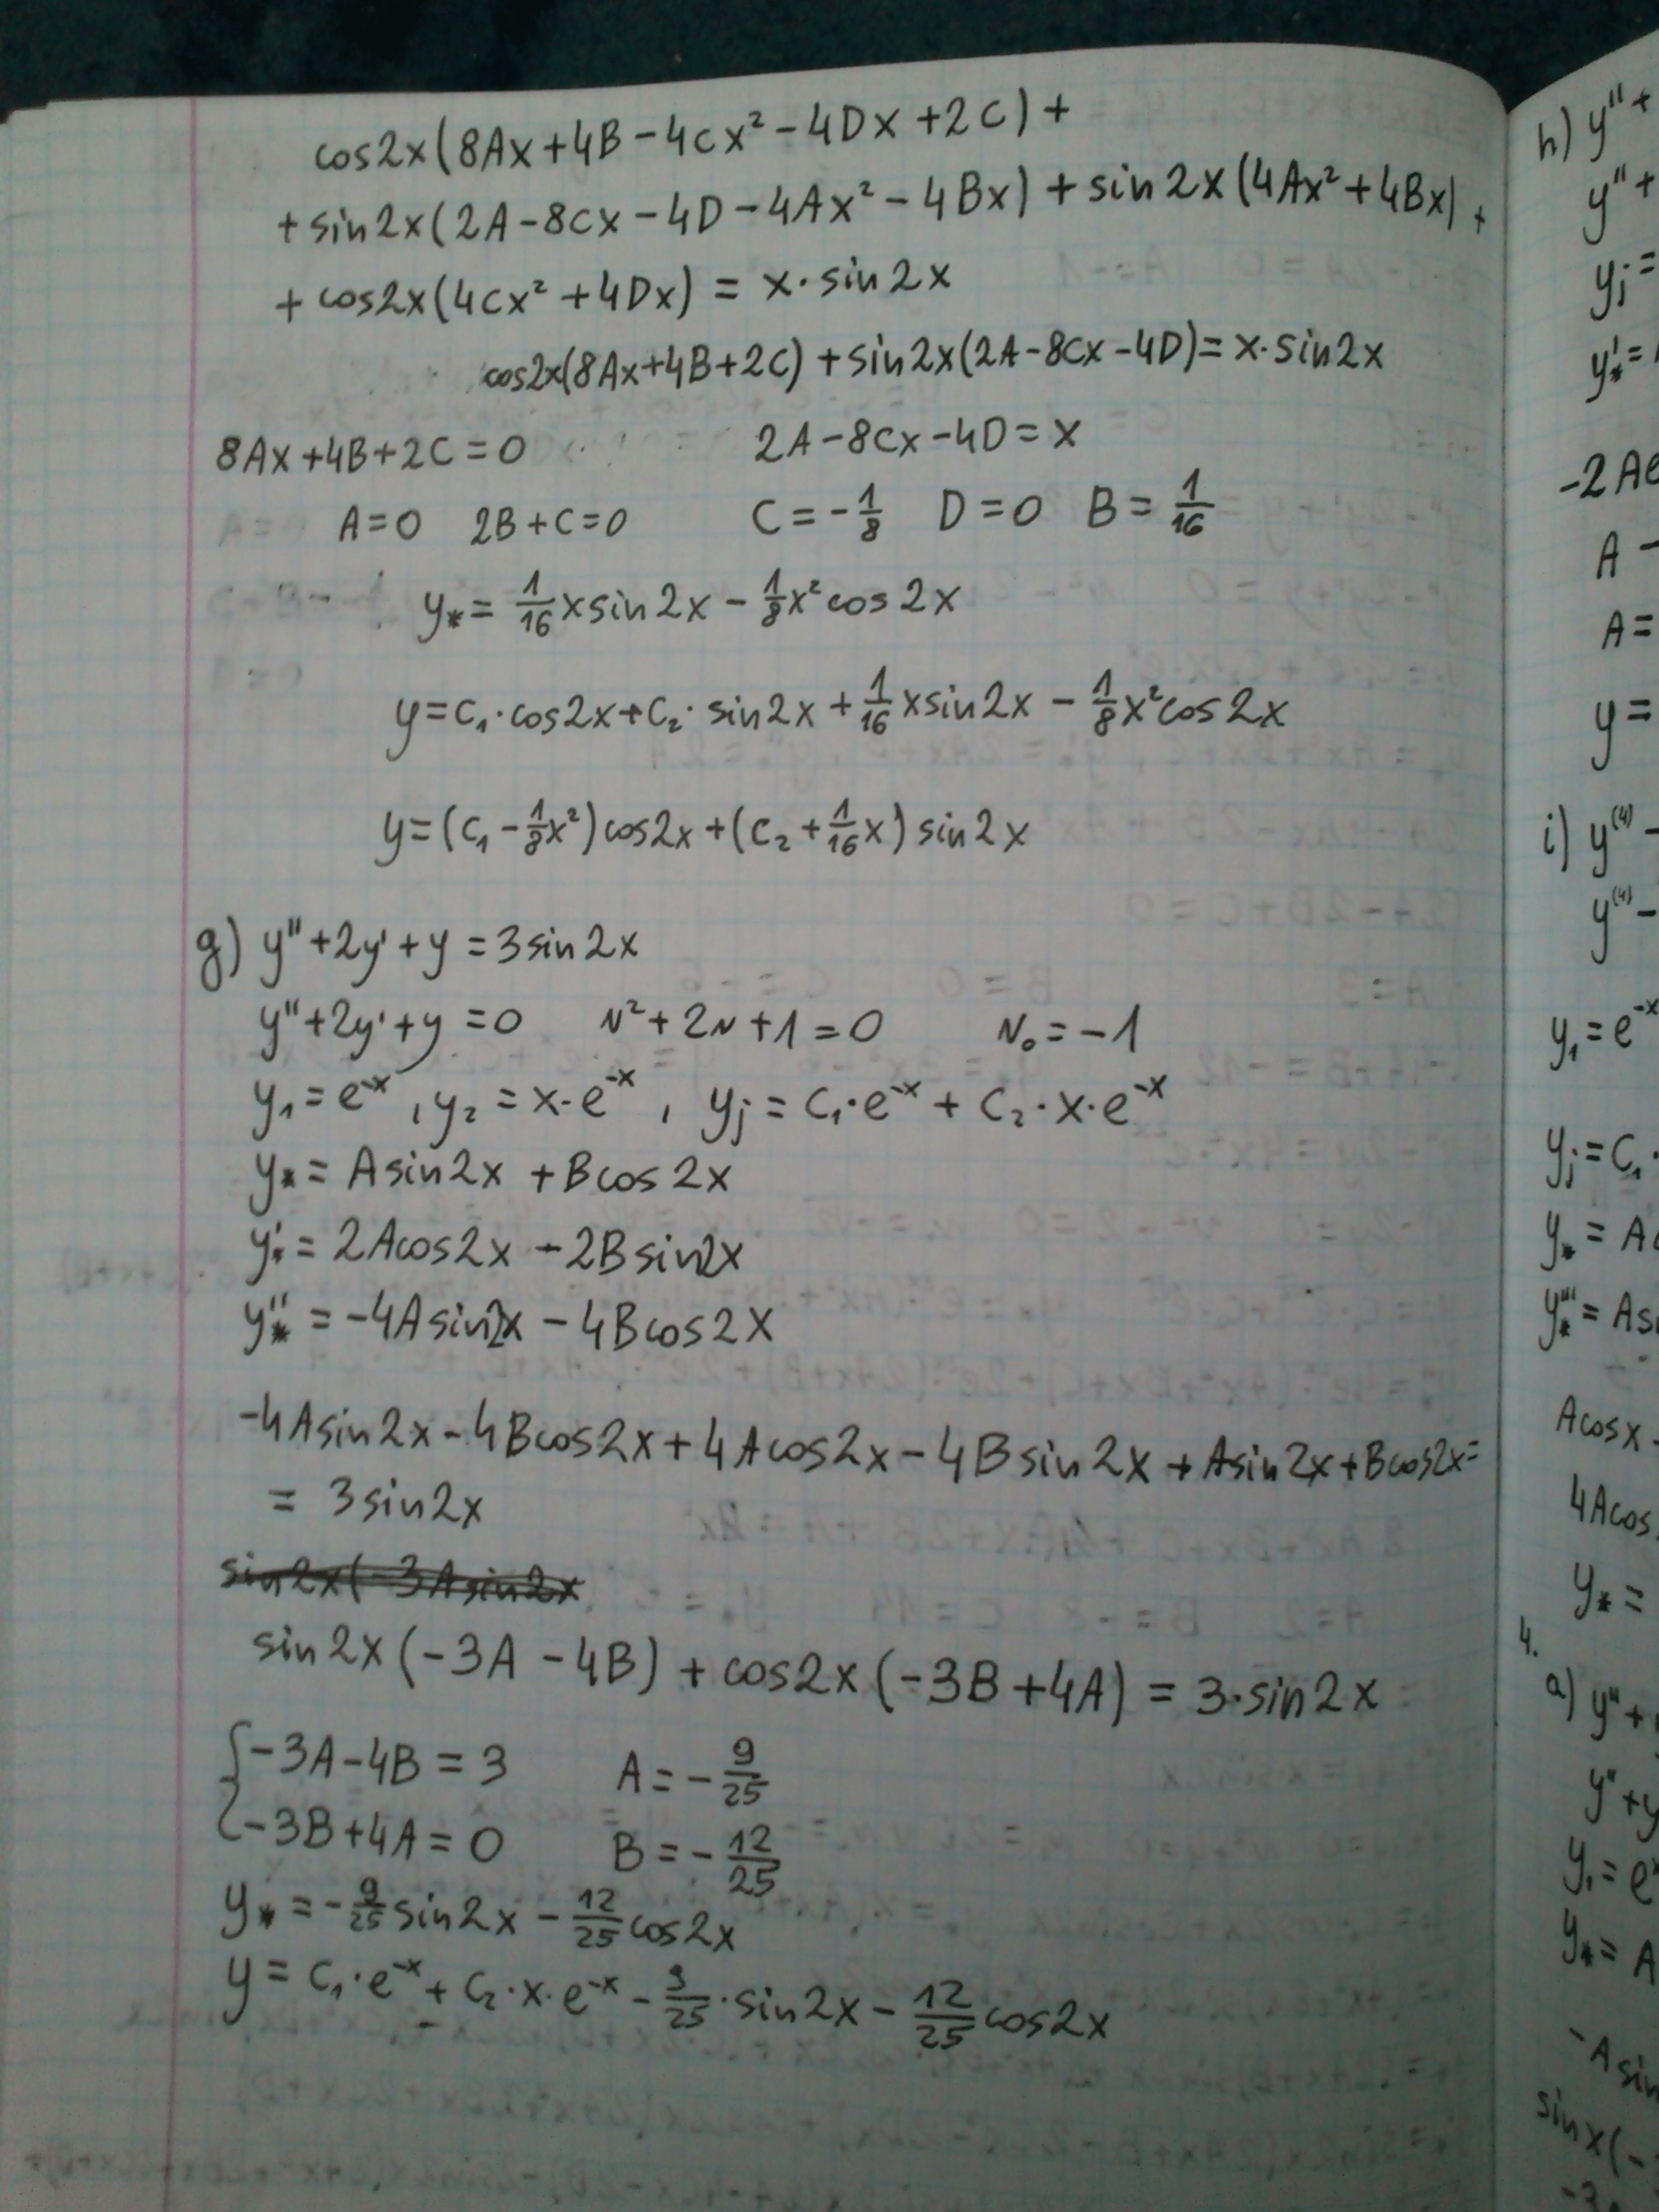 cos2x(8Ax+4B-4Cx²-4Dx+2C)+
+sin2x(2A-8Cx-4D-4Ax²-4Bx)+sin2x(4Ax²+4Bx)+
+cos2x(4Cx²+4Dx)=x·sin2x
cos2x(8Ax+4B+2C)+sin2x(2A-8Cx-4D)=x·sin2x
8Ax+4B+2C=0 2A-8Cx-4D=x
A=0 2B+C=0 C=-1/8 D=0 B=1/16
y*=1/16xsin2x-1/8x²cos2x
y=C₁·cos2x+C₂·sin2x+1/16xsin2x-1/8x²cos2x
y=(C₁-1/8x²)cos2x+(C₂+1/16x)sin2x
g) y''+2y'+y=3sin2x
y''+2y'+y=0 r²+2r+1=0 r₀=-1
y₁=e⁻ˣ, y₂=x·e⁻ˣ, yj=C₁·e⁻ˣ+C₂·x·e⁻ˣ
y*=Asin2x+Bcos2x
y*'=2Acos2x-2Bsin2x
y*''=-4Asin2x-4Bcos2x
-4Asin2x-4Bcos2x+4Acos2x-4Bsin2x+Asin2x+Bcos2x=
=3sin2x
sin2x(-3Asin2x
sin2x(-3A-4B)+cos2x(-3B+4A)=3·sin2x
{-3A-4B=3 A=-9/25
-3B+4A=0 B=-12/25
y*=-9/25sin2x-12/25cos2x
y=C₁·e⁻ˣ+C₂·x·e⁻ˣ-9/25·sin2x-12/25cos2x
h) y''+
y''+
yj=
y*'=
-2Ae
A-
A=
y=
i) y⁽⁴⁾-
y⁽⁴⁾-
y₁=e⁻ˣ
yj=C₁·
y*=A
y*'''=Asi
Acosx-
4Acos
y*=
4.
a) y''+
y''+y
y₁=e
y*=A
-Asin
sinx(-